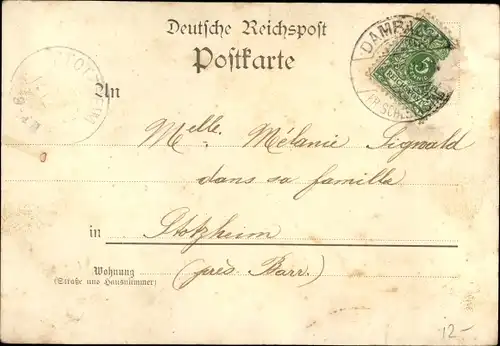 Deutsche Reichspost
Postkarte
An
Melle. Mélanie Sigwald
dans sa famille
in Stotzheim
(près Barr.)
Wohnung
(Straße und Hausnummer)
DAMBACH
5
12-